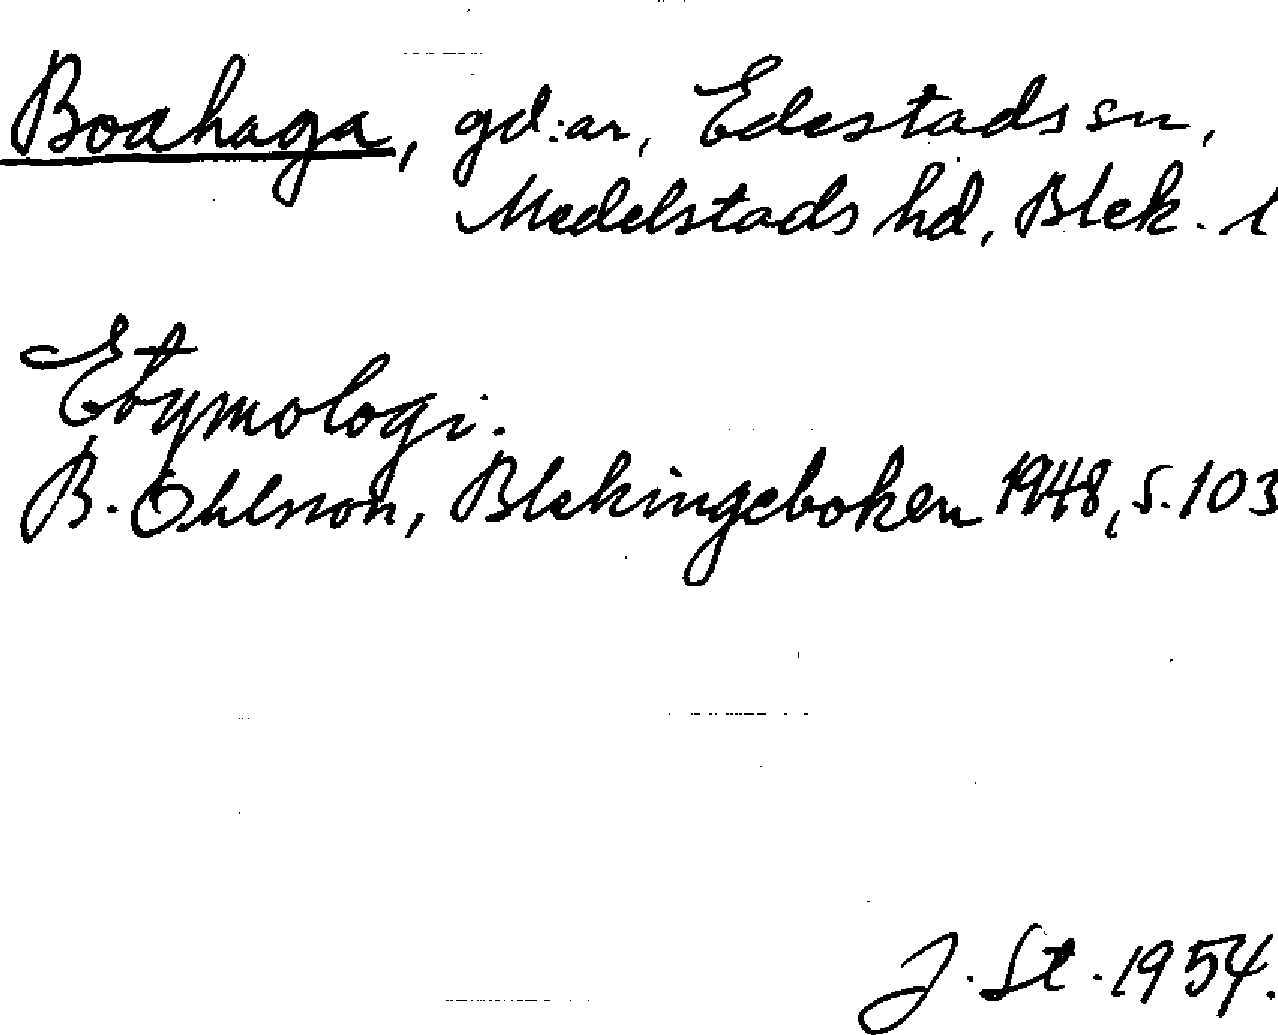 Boahaga, gd:ar, Edestads sn,
Medelstads hd, Blek. l
Etymologi.
B. Ohlsson, Blekingeboken 1948, s. 103
J. St. 1954.